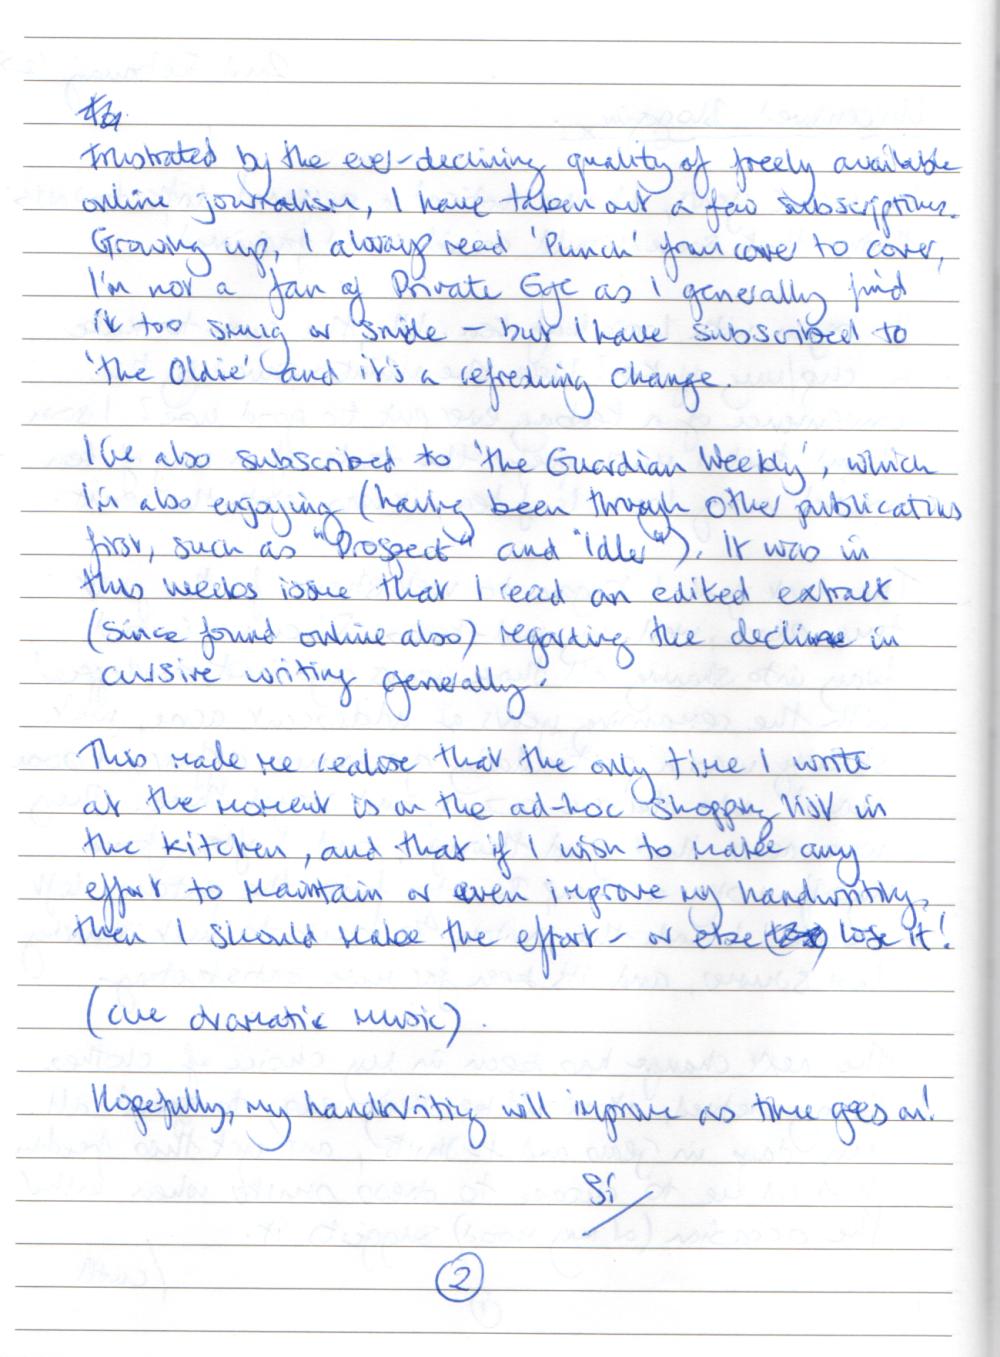 frustrated by the ever-declining quality of freely available
online journalism, I have taken out a few subscriptions.
Growing up, I always read 'Punch' from cover to cover,
I'm not a fan of Private Eye as I generally find
it too smug or snide – but I have subscribed to
'the Oldie' and it's a refreshing change.
I've also subscribed to 'the Guardian Weekly', which
I'm also enjoying (having been through other publications
first, such as "Prospect" and "Idler"). It was in
this weeks issue that I read an edited extract
(since found online also) regarding the decline in
cursive writing generally.
This made me realise that the only time I write
at the moment is on the ad-hoc shopping list in
the kitchen, and that if I wish to make any
effort to maintain or even improve my handwriting,
then I should make the effort – or else lose it!
(cue dramatic music).
Hopefully, my handwriting will improve as time goes on!
Si
2